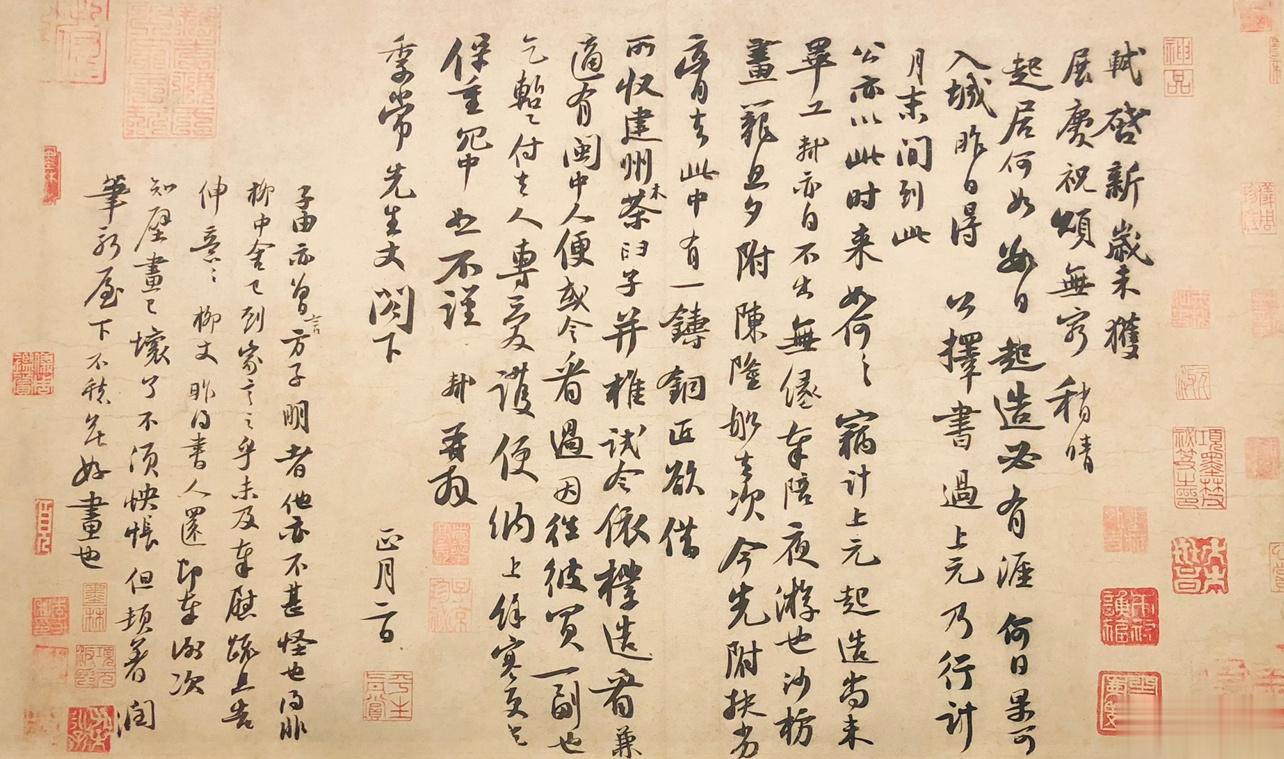 軾啓新歲未獲
展慶祝頌無窮稍晴
起居何如數日起造必有涯何日果可
入城昨日得公擇書過上元乃行計
月末間到此
公亦以此時来如何〻竊計上元起造尚未
畢工軾亦自不出無緣奉陪夜游也沙枋
畫籠旦夕附陳隆船去次今先附扶劣
膏去此中有一鑄銅匠欲借
所收建州木茶臼子并椎試令依樣造看兼
適有閩中人便或令看過因往彼買一副也
乞暫〻付去人專愛護便納上餘寒更乞
保重冗中恕不謹軾再拜
季常先生丈閣下
正月二日
子由亦曾言方子明者他亦不甚怪也得非
柳中舍已到家言之乎未及奉慰疏且告
伸意〻柳丈昨得書人還即奉謝次
知壁畫已壞了不須怏悵但頓著潤
筆新屋下不愁無好畫也
神品